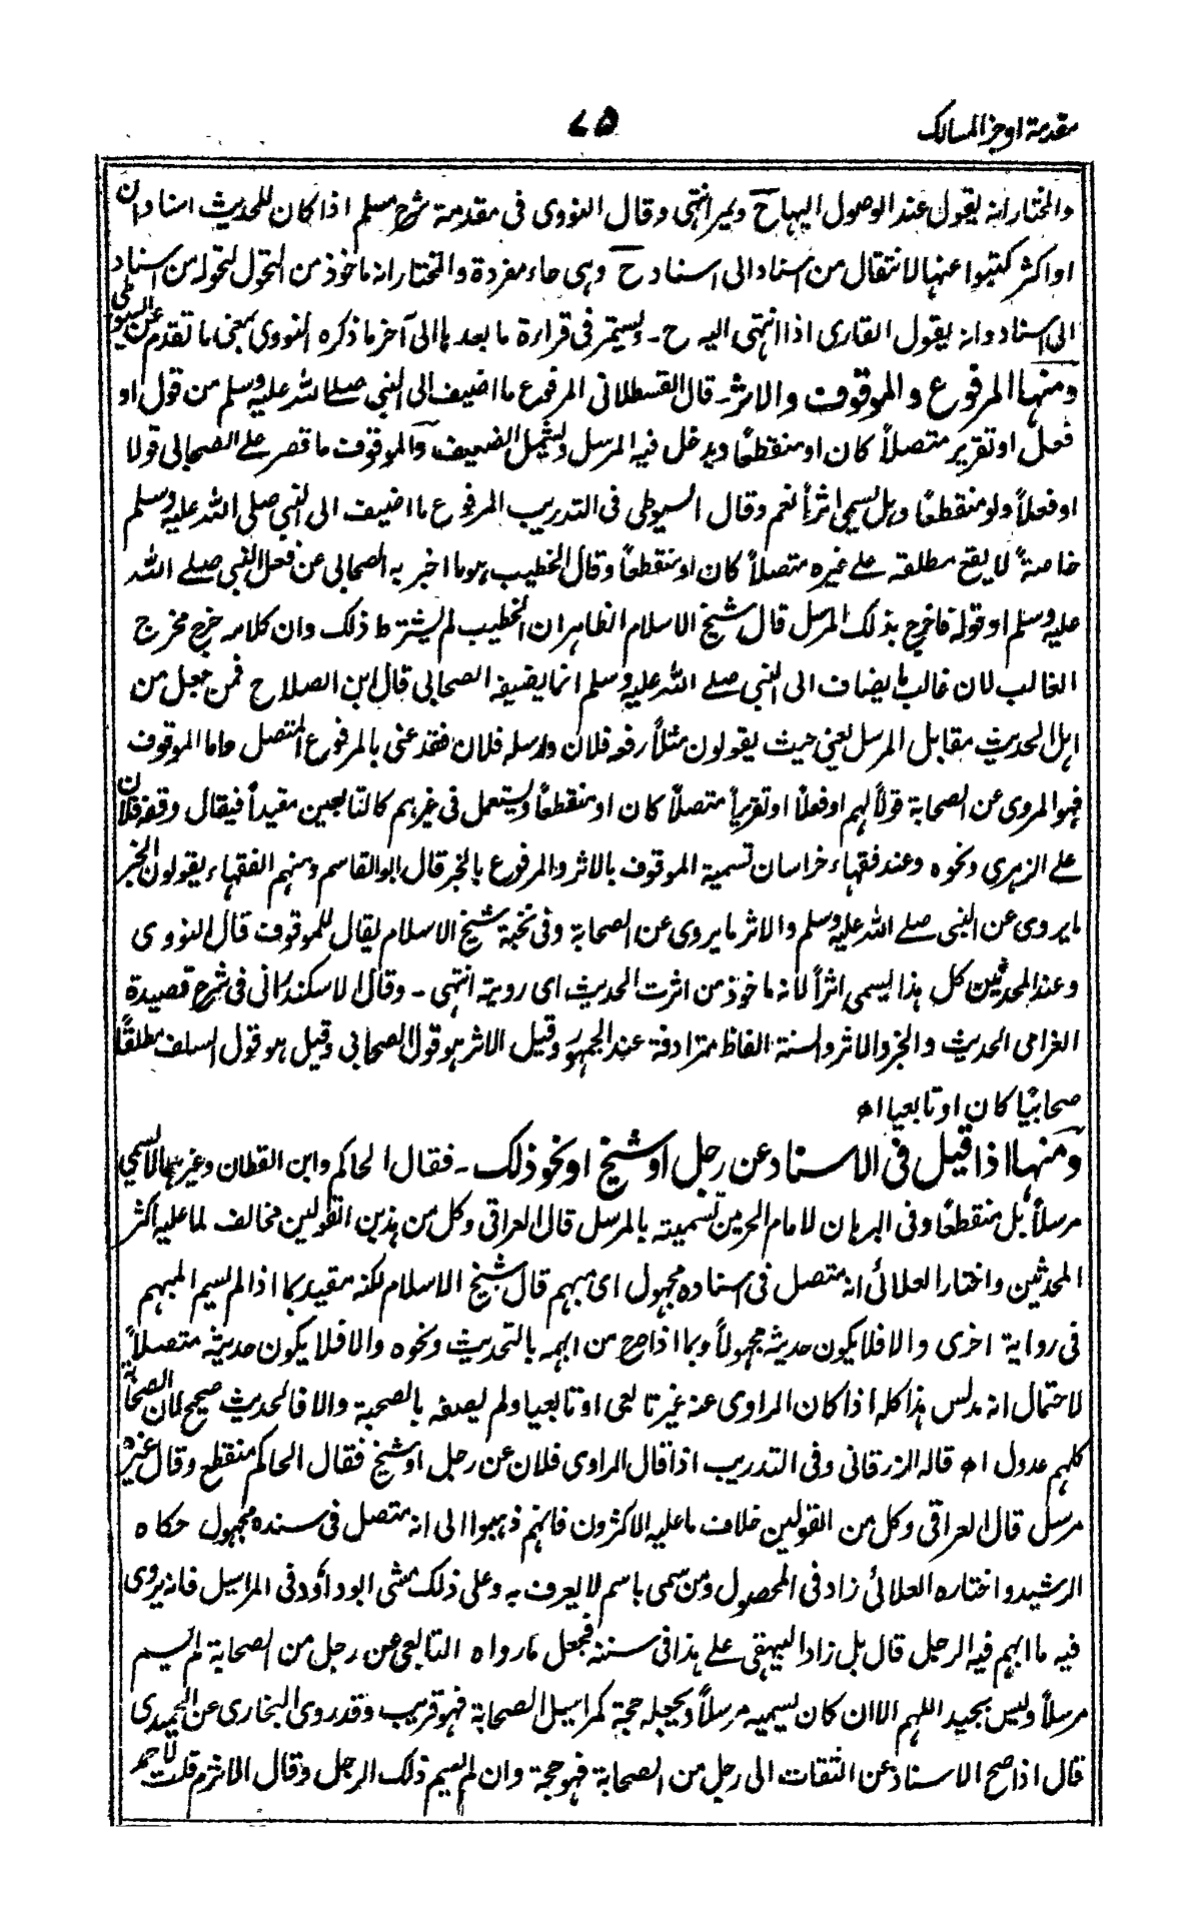 مقدمة اوجز المسالك
٧٥
والمختار انه يقول عند الوصول اليها ح ويمر انتهى وقال النووى فى مقدمة شرح مسلم اذا كان للحديث اسنادان
او اكثر كتبوا عند الانتقال من اسناد الى اسناد ح وهى حاء مفردة والمختار انه ماخوذ من التحول لتحوله من اسناد
الى اسناد وانه يقول القارى اذا انتهى اليه ح - ويستمر فى قراءة ما بعدها الى آخر ما ذكره النووى بمعنى ما تقدم عن السيوطى
ومنها المرفوع والموقوف والاثر - قال القسطلانى المرفوع ما اضيف الى النبى صلے الله عليه وسلم من قول او
فعل او تقرير متصلاً كان او منقطعًا ويدخل فيه المرسل ويشمل الضعيف والموقوف ما قصر علے الصحابى قولا
او فعلاً ولو منقطعًا وهل يسمى اثراً نعم وقال السيوطى فى التدريب المرفوع ما اضيف الى النبى صلى الله عليه وسلم
خاصةً لا يقع مطلقه علے غيره متصلاً كان او منقطعاً وقال الخطيب هوما اخبر به الصحابى عن فعل النبى صلے الله
عليه وسلم او قوله فاخرج بذلك المرسل قال شيخ الاسلام الظاهر ان الخطيب لم يشترط ذلك وان كلامه خرج مخرج
الغالب لان غالب ما يضاف الى النبى صلے الله عليه وسلم انما يضيفه الصحابى قال ابن الصلاح فمن جعل من
اهل الحديث مقابل المرسل يعنى حيث يقولون مثلاً رفعه فلان وارسله فلان فقد عنى بالمرفوع المتصل واما الموقوف
فهو المروى عن الصحابة قولاً لهم او فعلاً او تقريراً متصلاً كان او منقطعاً ويستعمل فى غيرهم كالتابعين مقيداً فيقال وقفه فلان
علے الزهرى ونحوه وعند فقهاء خراسان تسمية الموقوف بالاثر والمرفوع بالخبر قال ابو القاسم ومنهم الفقهاء يقولون الخبر
ما يروى عن النبى صلے الله عليه وسلم والاثر ما يروى عن الصحابة وفى نخبة شيخ الاسلام يقال للموقوف قال النووى
وعند المحدثين كل هذا يسمى اثراً لانه ماخوذ من اثرت الحديث اى رويته انتهى - وقال الاسكندرانى فى شرح قصيدة
الغرامى الحديث والخبر والاثر والسنة الفاظ مترادفة عند الجمهور وقيل الاثر هو قول الصحابى وقيل هو قول السلف مطلقاً
صحابيًا كان او تابعيا اھ
ومنها اذا قيل فى الاسناد عن رجل او شيخ او نحو ذلك - فقال الحاكم وابن القطان وغيرهما لا يسمى
مرسلاً بل منقطعًا وفى البرهان لامام الحرمين تسميته بالمرسل قال العراقى وكل من هذين القولين مخالف لما عليه اكثر
المحدثين واختار العلائى انه متصل فى اسناده مجهول اى مبهم قال شيخ الاسلام لكنه مقيد بما اذا لم يسم المبهم
فى رواية اخرى والا فلا يكون حديثه مجهولاً وبما اذا صرح من ابهمه بالتحديث ونحوه والا فلا يكون حديثه متصلاً
لاحتمال انه مدلس هذا كله اذا كان الراوى عنه غير تابعى او تابعيا ولم يصفه بالصحبة والا فالحديث صحيح لان الصحابة
كلهم عدول اھ قاله الزرقانى وفى التدريب اذا قال الراوى فلان عن رجل او شيخ فقال الحاكم منقطع وقال غيره
مرسل قال العراقى وكل من القولين خلاف ما عليه الاكثرون فانهم ذهبوا الى انه متصل فى سنده مجهول حكاه
الرشيد واختاره العلائى زاد فى المحصول ومن سمى باسم لا يعرف به وعلى ذلك مشى ابو داؤد فى المراسيل فانه يروى
فيه ما ابهم فيه الرجل قال بل زاد البيهقى علے هذا فى سننه فجعل ما رواه التابعى عن رجل من الصحابة لم يسم
مرسلاً وليس بجيد اللهم الا ان كان يسميه مرسلاً ويجعله حجة كمراسيل الصحابة فهو قريب وقد روى البخارى عن الحميدى
قال اذا صح الاسناد عن الثقات الى رجل من الصحابة فهو حجة وان لم يسم ذلك الرجل وقال الاثرم قلت لاحمد